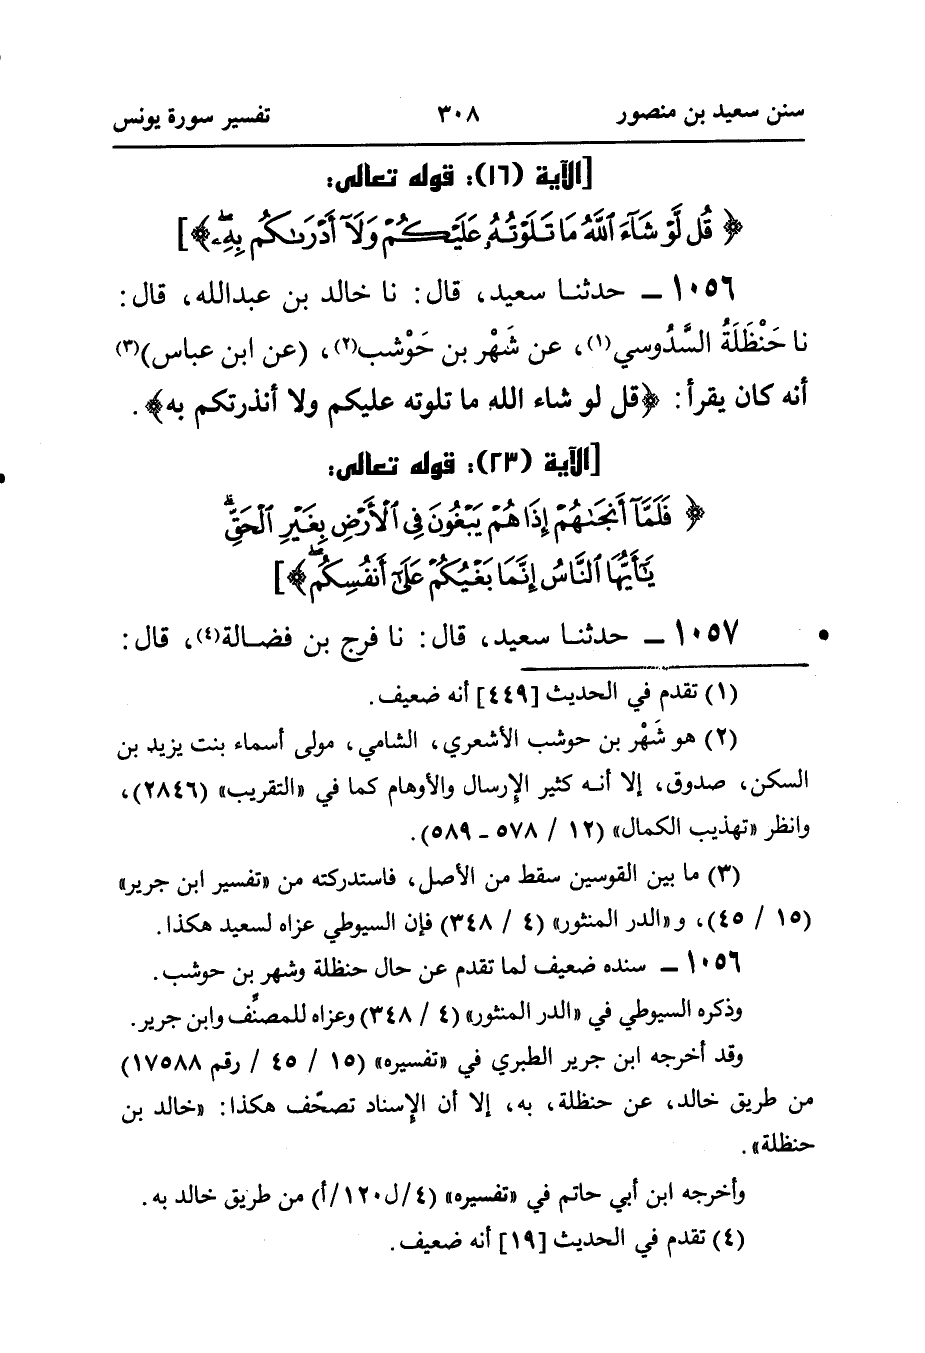 سنن سعيد بن منصور ٣٠٨ تفسير سورة يونس
[الآية (١٦): قوله تعالى:
﴿ قُل لَّوْ شَآءَ ٱللَّهُ مَا تَلَوْتُهُۥ عَلَيْكُمْ وَلَآ أَدْرَىٰكُم بِهِۦۖ ﴾]
١٠٥٦ ـ حدثنا سعيد، قال: نا خالد بن عبدالله، قال:
نا حَنْظَلَةُ السَّدُوسي(١)، عن شَهْر بن حَوْشب(٢)، (عن ابن عباس)(٣)
أنه كان يقرأ: ﴿قل لو شاء الله ما تلوته عليكم ولا أنذرتكم به﴾.
[الآية (٢٣): قوله تعالى:
﴿ فَلَمَّآ أَنجَىٰهُمْ إِذَا هُمْ يَبْغُونَ فِى ٱلْأَرْضِ بِغَيْرِ ٱلْحَقِّۗ
يَٰٓأَيُّهَا ٱلنَّاسُ إِنَّمَا بَغْيُكُمْ عَلَىٰٓ أَنفُسِكُمۖ ﴾]
١٠٥٧ ـ حدثنا سعيد، قال: نا فرج بن فضالة(٤)، قال:
(١) تقدم في الحديث [٤٤٩] أنه ضعيف.
(٢) هو شَهْر بن حوشب الأشعري، الشامي، مولى أسماء بنت يزيد بن
السكن، صدوق، إلا أنه كثير الإرسال والأوهام كما في «التقريب» (٢٨٤٦)،
وانظر «تهذيب الكمال» (١٢ / ٥٧٨ ـ ٥٨٩).
(٣) ما بين القوسين سقط من الأصل، فاستدركته من «تفسير ابن جرير»
(١٥ / ٤٥)، و«الدر المنثور» (٤ / ٣٤٨) فإن السيوطي عزاه لسعيد هكذا.
١٠٥٦ ـ سنده ضعيف لما تقدم عن حال حنظلة وشهر بن حوشب.
وذكره السيوطي في «الدر المنثور» (٤ / ٣٤٨) وعزاه للمصنِّف وابن جرير.
وقد أخرجه ابن جرير الطبري في «تفسيره» (١٥ / ٤٥ / رقم ١٧٥٨٨)
من طريق خالد، عن حنظلة، به، إلا أن الإسناد تصحّف هكذا: «خالد بن
حنظلة».
وأخرجه ابن أبي حاتم في «تفسيره» (٤/ل١٢٠/أ) من طريق خالد به.
(٤) تقدم في الحديث [١٩] أنه ضعيف.